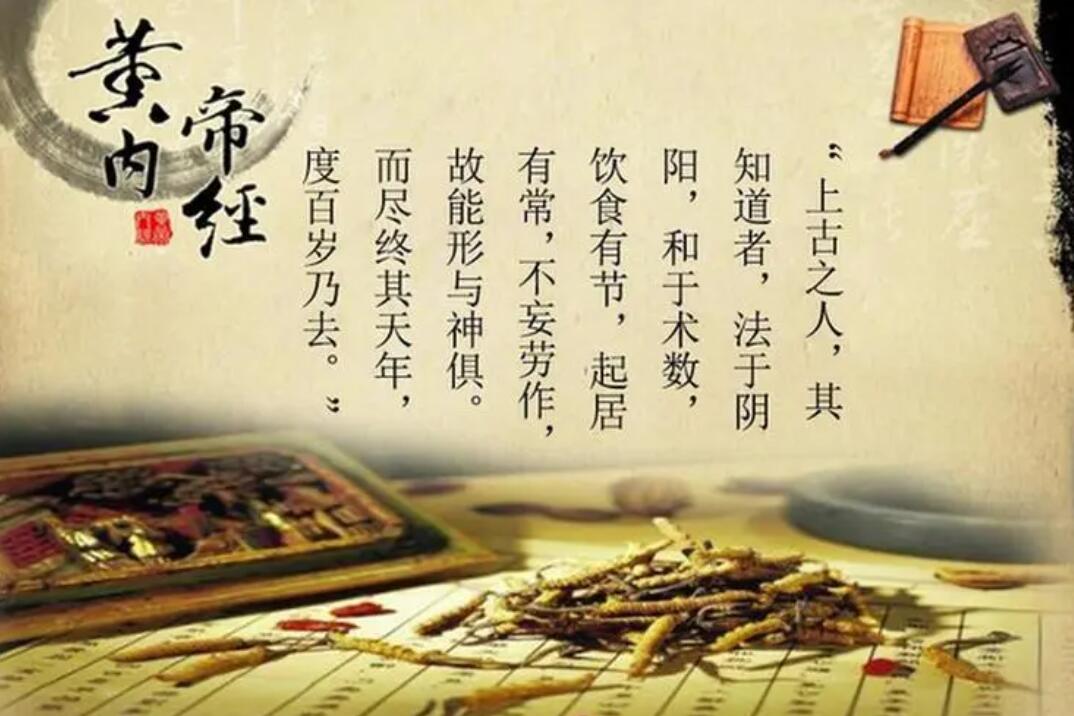 “上古之人，其
知道者，法于阴
阳，和于术数，
饮食有节，起居
有常，不妄劳作，
故能形与神俱。
而尽终其天年，
度百岁乃去。”
黄帝
内經